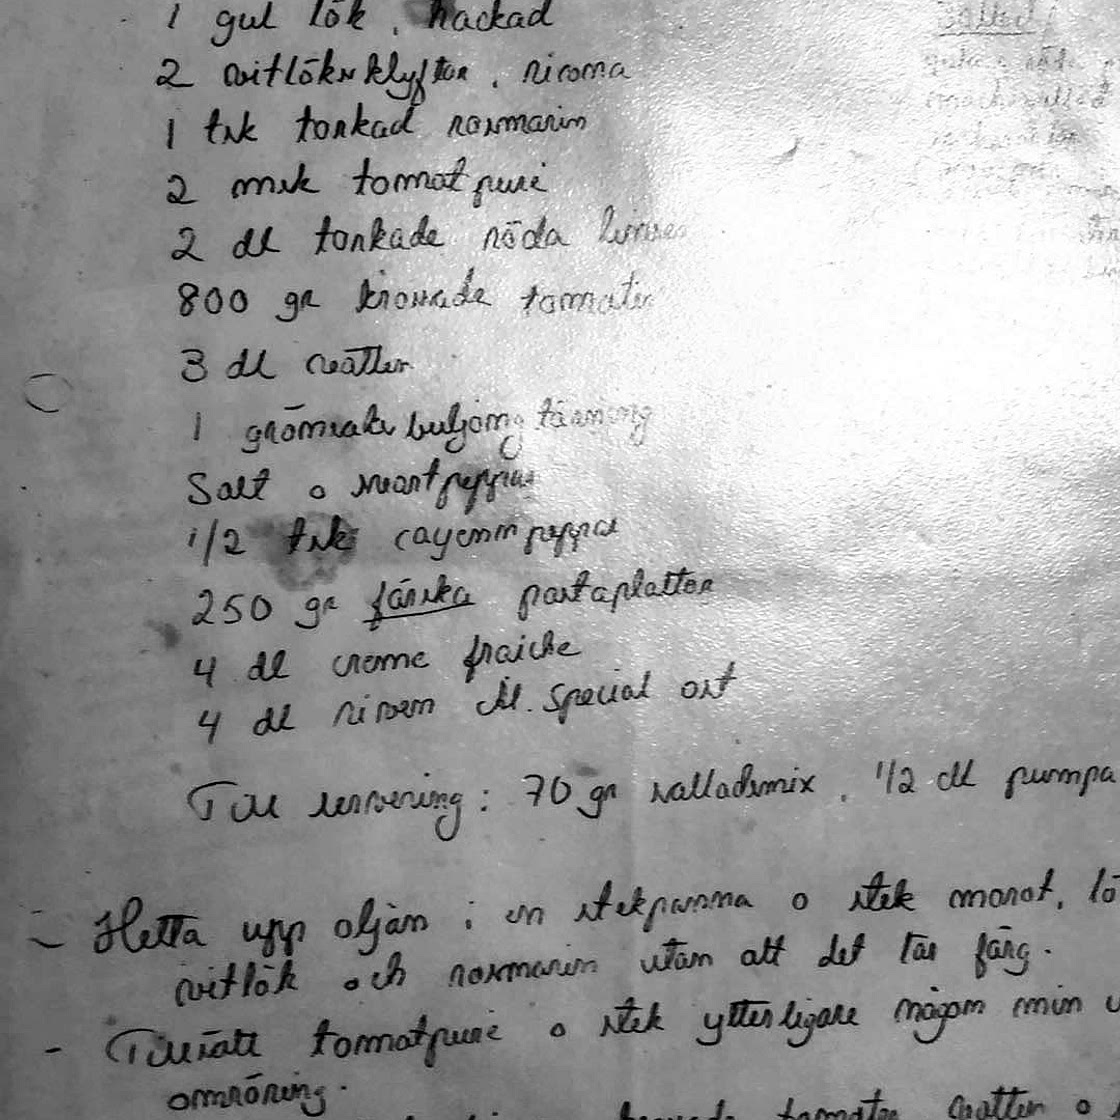 1 gul lök, hackad
2 vitlöksklyftor, rivna
1 tsk torkad rosmarin
2 msk tomatpuré
2 dl torkade röda linser
800 gr krossade tomater
3 dl vatten
1 grönsaks buljong tärning
Salt o svartpeppar
1/2 tsk cayennpeppar
250 gr färska pastaplattor
4 dl creme fraiche
4 dl riven special ost
Till servering: 70 gr salladsmix, 1/2 dl pumpa
- Hetta upp oljan i en stekpanna o stek morot, lö
vitlök och rosmarin utan att det tar färg.
- Tillsätt tomatpuré o stek ytterligare någon min u
omröring.
tomater vatten o